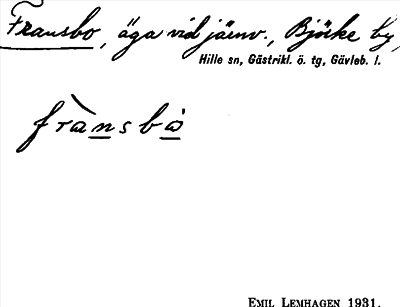 Fransbo, äga vid järnv., Björke by,
Hille sn, Gästrikl. ö. tg, Gävleb. l.
frànsbò
EMIL LEMHAGEN 1931.